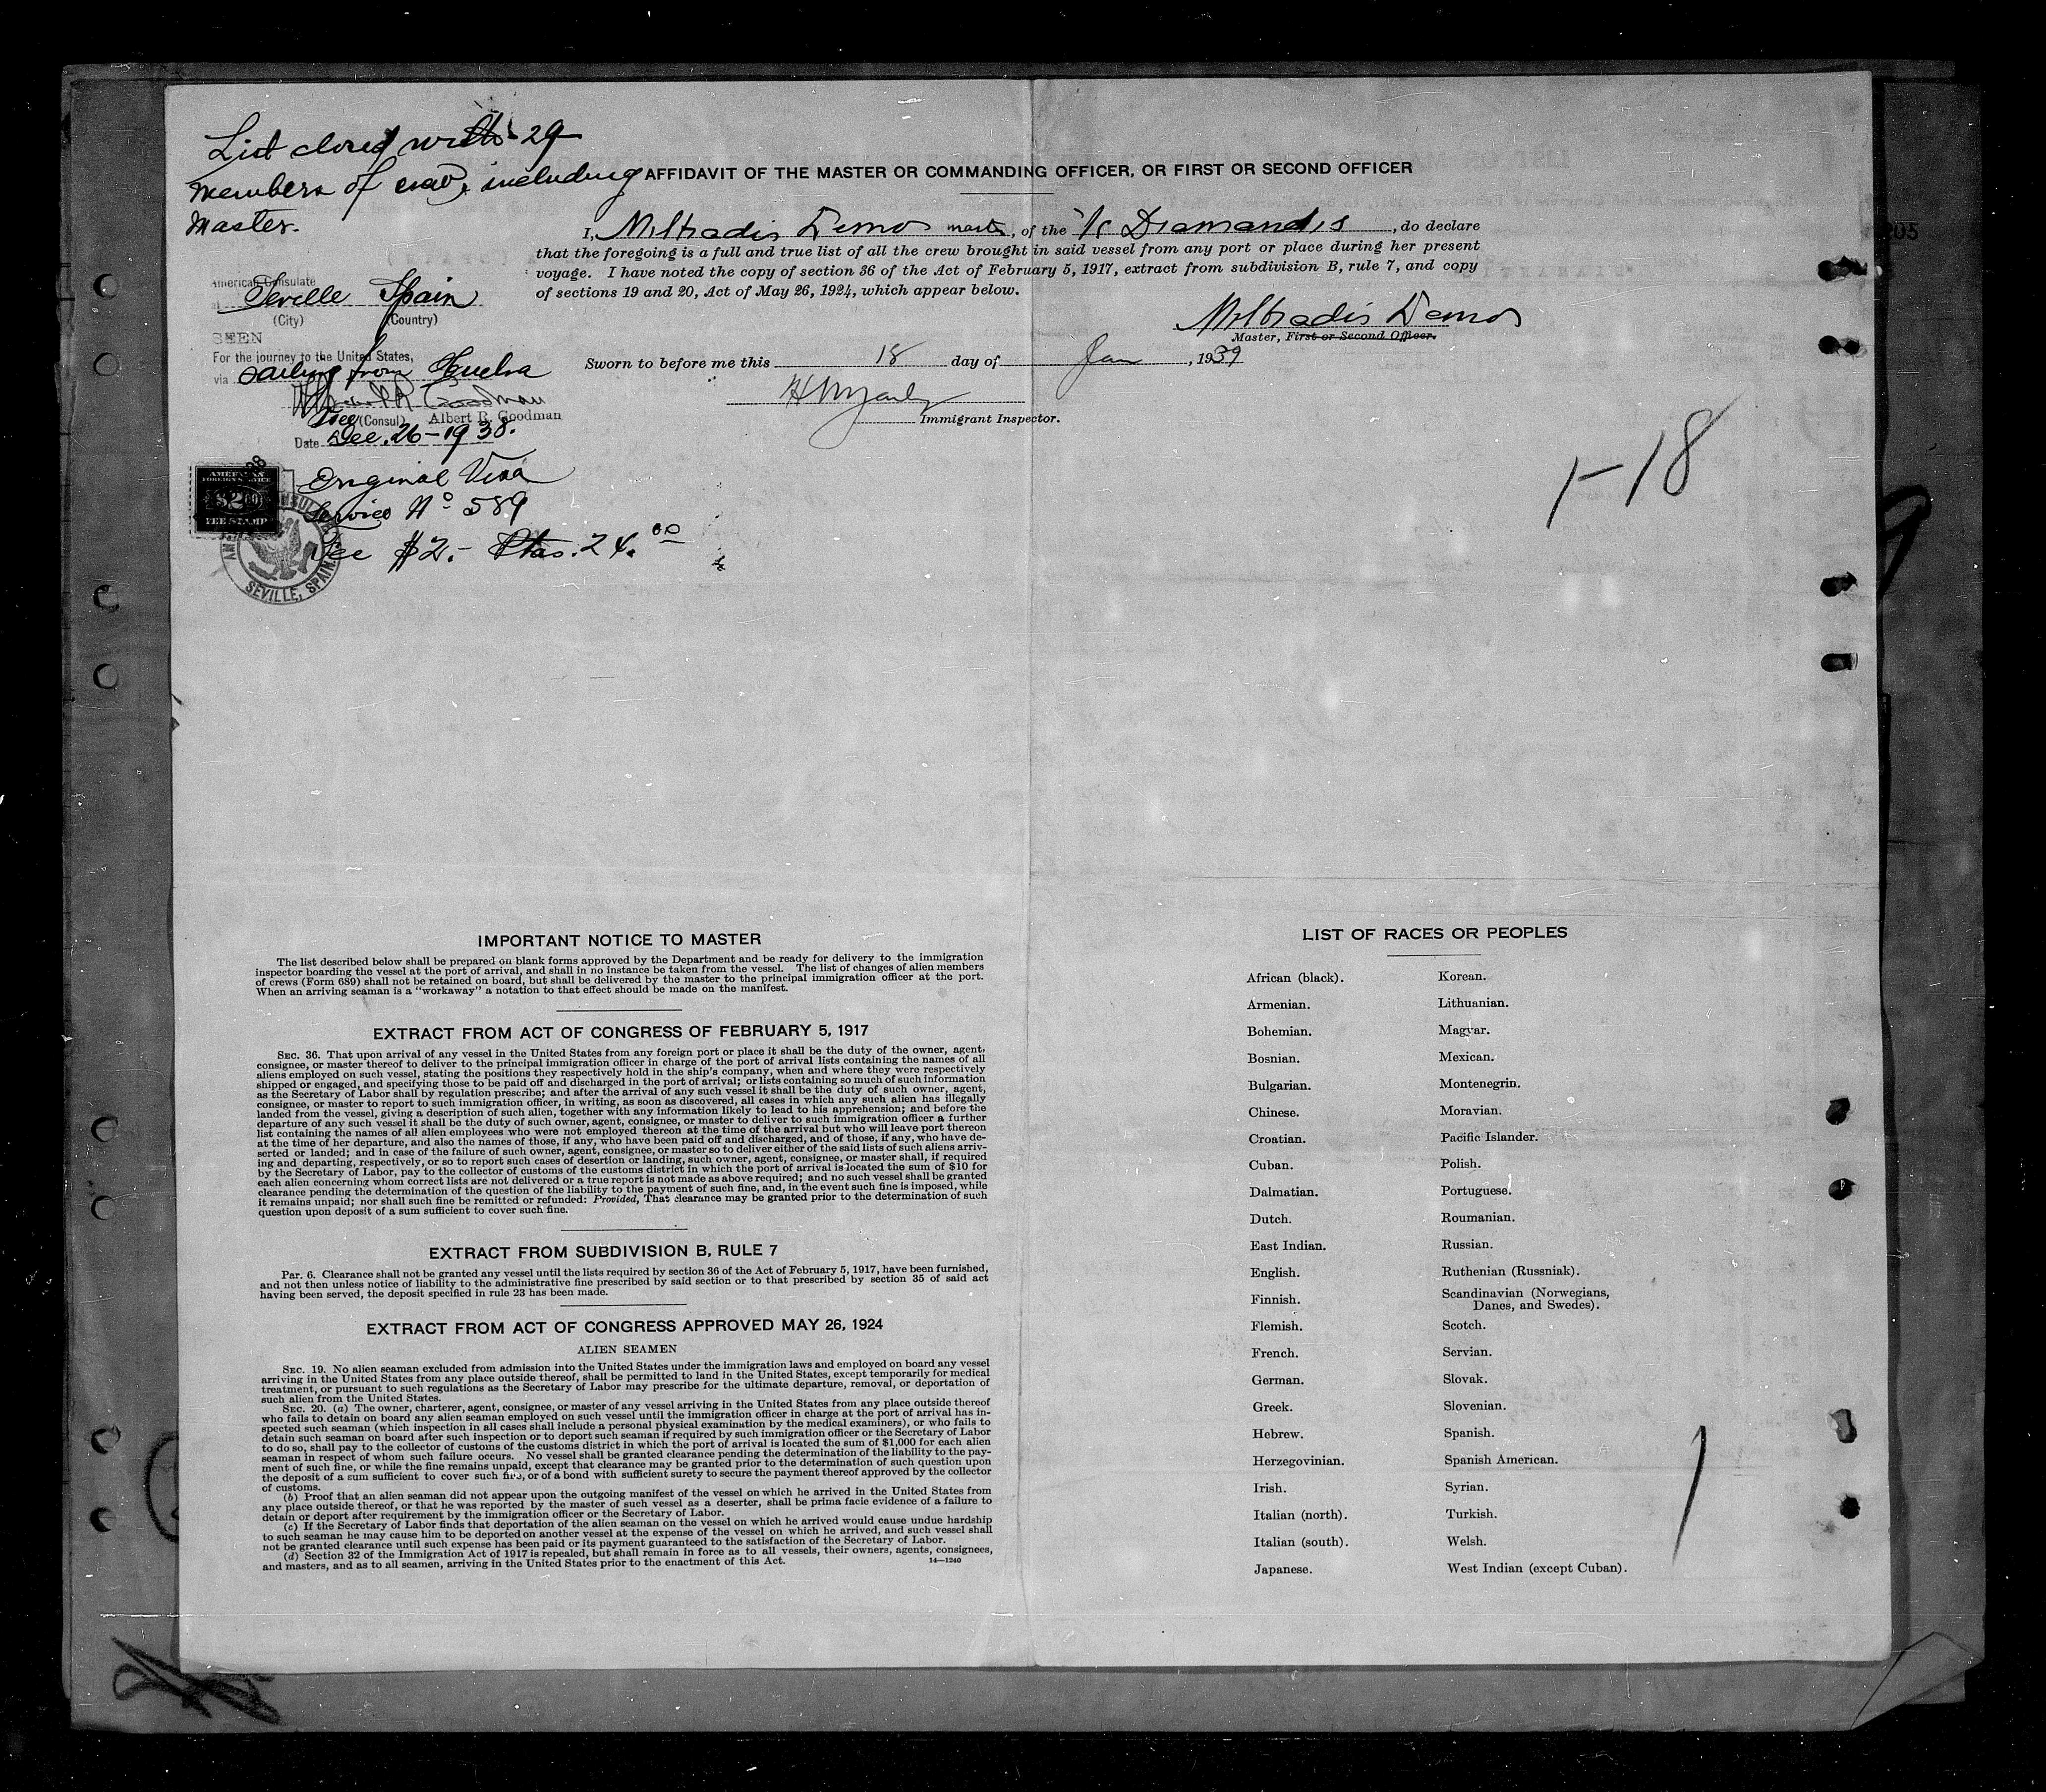 List closed with 29
members of crew, including
Master.
AFFIDAVIT OF THE MASTER OR COMMANDING OFFICER, OR FIRST OR SECOND OFFICER
I, Miltiadis Demos master, of the "K Diamandis, do declare
that the foregoing is a full and true list of all the crew brought in said vessel from any port or place during her present
voyage. I have noted the copy of section 36 of the Act of February 5, 1917, extract from subdivision B, rule 7, and copy
of sections 19 and 20, Act of May 26, 1924, which appear below.
Miltiadis Demos
Master, First or Second Officer.
Sworn to before me this 18 day of Jan, 1939
Immigrant Inspector.
American Consulate
at Seville Spain
(City) (Country)
SEEN
For the journey to the United States,
via sailing from Huelva
Albert R. Goodman
Vice (Consul) Albert R. Goodman
Date Dec. 26-1938.
AMERICAN
FOREIGN SERVICE
$2.00
FEE STAMP
Original Visa
Service No 589
Fee $2.- Ptas. 24.00
SEVILLE, SPAIN.
1-18
205
IMPORTANT NOTICE TO MASTER
The list described below shall be prepared on blank forms approved by the Department and be ready for delivery to the immigration
inspector boarding the vessel at the port of arrival, and shall in no instance be taken from the vessel. The list of changes of alien members
of crews (Form 689) shall not be retained on board, but shall be delivered by the master to the principal immigration officer at the port.
When an arriving seaman is a "workaway" a notation to that effect should be made on the manifest.
EXTRACT FROM ACT OF CONGRESS OF FEBRUARY 5, 1917
SEC. 36. That upon arrival of any vessel in the United States from any foreign port or place it shall be the duty of the owner, agent,
consignee, or master thereof to deliver to the principal immigration officer in charge of the port of arrival lists containing the names of all
aliens employed on such vessel, stating the positions they respectively hold in the ship's company, when and where they were respectively
shipped or engaged, and specifying those to be paid off and discharged in the port of arrival; or lists containing so much of such information
as the Secretary of Labor shall by regulation prescribe; and after the arrival of any such vessel it shall be the duty of such owner, agent,
consignee, or master to report to such immigration officer, in writing, as soon as discovered, all cases in which any such alien has illegally
landed from the vessel, giving a description of such alien, together with any information likely to lead to his apprehension; and before the
departure of any such vessel it shall be the duty of such owner, agent, consignee, or master to deliver to such immigration officer a further
list containing the names of all alien employees who were not employed thereon at the time of the arrival but who will leave port thereon
at the time of her departure, and also the names of those, if any, who have been paid off and discharged, and of those, if any, who have de-
serted or landed; and in case of the failure of such owner, agent, consignee, or master so to deliver either of the said lists of such aliens arriv-
ing and departing, respectively, or so to report such cases of desertion or landing, such owner, agent, consignee, or master shall, if required
by the Secretary of Labor, pay to the collector of customs of the customs district in which the port of arrival is located the sum of $10 for
each alien concerning whom correct lists are not delivered or a true report is not made as above required; and no such vessel shall be granted
clearance pending the determination of the question of the liability to the payment of such fine, and, in the event such fine is imposed, while
it remains unpaid; nor shall such fine be remitted or refunded: Provided, That clearance may be granted prior to the determination of such
question upon deposit of a sum sufficient to cover such fine.
EXTRACT FROM SUBDIVISION B, RULE 7
PAR. 6. Clearance shall not be granted any vessel until the lists required by section 36 of the Act of February 5, 1917, have been furnished,
and not then unless notice of liability to the administrative fine prescribed by said section or to that prescribed by section 35 of said act
having been served, the deposit specified in rule 23 has been made.
EXTRACT FROM ACT OF CONGRESS APPROVED MAY 26, 1924
ALIEN SEAMEN
SEC. 19. No alien seaman excluded from admission into the United States under the immigration laws and employed on board any vessel
arriving in the United States from any place outside thereof, shall be permitted to land in the United States, except temporarily for medical
treatment, or pursuant to such regulations as the Secretary of Labor may prescribe for the ultimate departure, removal, or deportation of
such alien from the United States.
SEC. 20. (a) The owner, charterer, agent, consignee, or master of any vessel arriving in the United States from any place outside thereof
who fails to detain on board any alien seaman employed on such vessel until the immigration officer in charge at the port of arrival has in-
spected such seaman (which inspection in all cases shall include a personal physical examination by the medical examiners), or who fails to
detain such seaman on board after such inspection or to deport such seaman if required by such immigration officer or the Secretary of Labor
to do so, shall pay to the collector of customs of the customs district in which the port of arrival is located the sum of $1,000 for each alien
seaman in respect of whom such failure occurs. No vessel shall be granted clearance pending the determination of the liability to the pay-
ment of such fine, or while the fine remains unpaid, except that clearance may be granted prior to the determination of such question upon
the deposit of a sum sufficient to cover such fine, or of a bond with sufficient surety to secure the payment thereof approved by the collector
of customs.
(b) Proof that an alien seaman did not appear upon the outgoing manifest of the vessel on which he arrived in the United States from
any place outside thereof, or that he was reported by the master of such vessel as a deserter, shall be prima facie evidence of a failure to
detain or deport after requirement by the immigration officer or the Secretary of Labor.
(c) If the Secretary of Labor finds that deportation of the alien seaman on the vessel on which he arrived would cause undue hardship
to such seaman he may cause him to be deported on another vessel at the expense of the vessel on which he arrived, and such vessel shall
not be granted clearance until such expense has been paid or its payment guaranteed to the satisfaction of the Secretary of Labor.
(d) Section 32 of the Immigration Act of 1917 is repealed, but shall remain in force as to all vessels, their owners, agents, consignees,
and masters, and as to all seamen, arriving in the United States prior to the enactment of this Act. 14—1240
LIST OF RACES OR PEOPLES
African (black). Korean.
Armenian. Lithuanian.
Bohemian. Magyar.
Bosnian. Mexican.
Bulgarian. Montenegrin.
Chinese. Moravian.
Croatian. Pacific Islander.
Cuban. Polish.
Dalmatian. Portuguese.
Dutch. Roumanian.
East Indian. Russian.
English. Ruthenian (Russniak).
Finnish. Scandinavian (Norwegians,
Danes, and Swedes).
Flemish. Scotch.
French. Servian.
German. Slovak.
Greek. Slovenian.
Hebrew. Spanish.
Herzegovinian. Spanish American.
Irish. Syrian.
Italian (north). Turkish.
Italian (south). Welsh.
Japanese. West Indian (except Cuban).